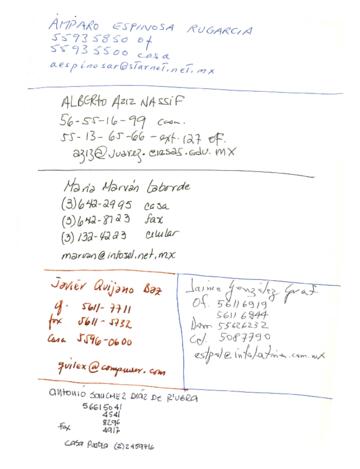 AMPARO ESPINOSA RUGARCIA
55935850 of
55935500 casa
aespinosar@starnet.net.mx
ALBERTO AZIZ NASSIF
56-55-16-99 casa.
55-13-65-66 - ext. 127 of.
aziz@juarez.ciesas.edu.mx
María Marván Laborde
(3)642-2995 casa
(3)642-8723 fax
(3)132-4223 celular
marvan@infosel.net.mx
Javier Quijano Baz
of. 5611-7711
fax 5611-5732
Casa 5596-0600
quilex@compuserve.com
Jaime González Graf
Of. 56116919
56116844
Dom 55626232
Cel. 5087790
estpol@intelatina.com.mx
ANTONIO SANCHEZ DIAZ DE RIVERA
56615041
4541
8296
Fax 4917
CASA Puebla (2)2459716